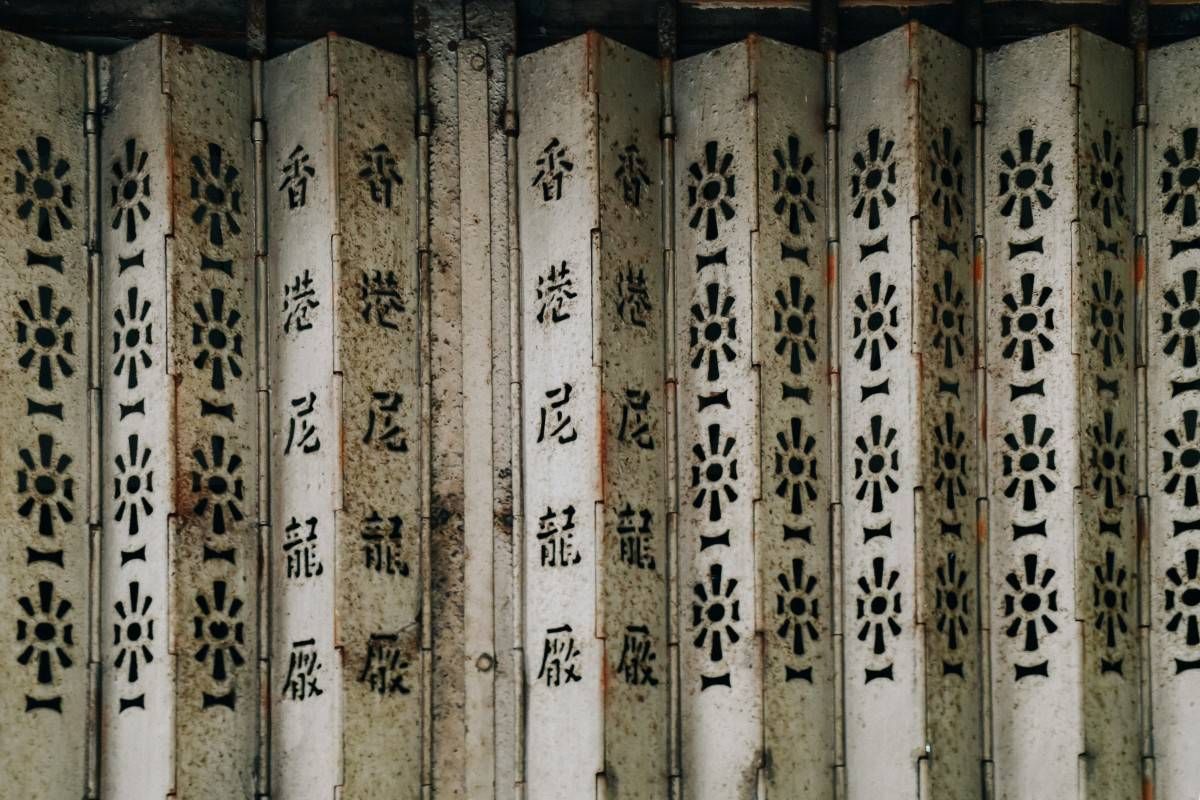 香港尼龍廠
香港尼龍廠
香港尼龍廠
香港尼龍廠